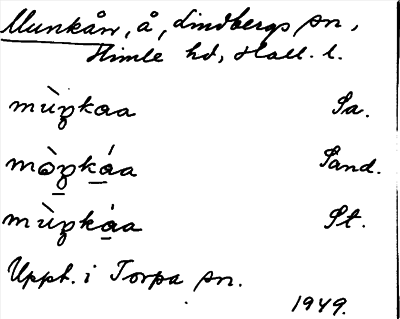 Munkån, å, Lindbergs sn,
Himle hd, Hall. l.
mùŋkaa Sa.
mòŋkáa Sand.
mùŋkáa St.
Uppt. i Torpa sn.
1949.